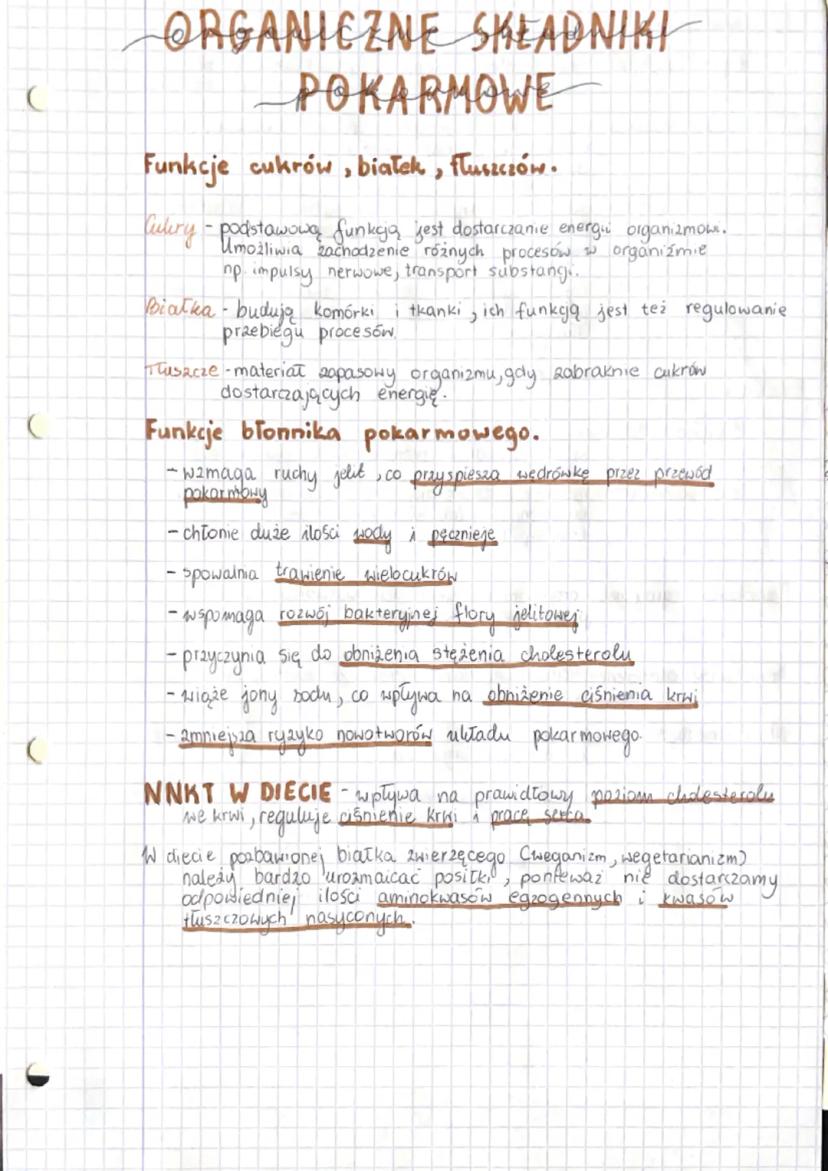 ORGANICZNE SKŁADNIKI
organiczne składniki
POKARMOWE
pokarmowe
Funkcje cukrów, białek, tłuszczów.
Cukry - podstawową funkcją jest dostarczanie energii organizmowi.
Umożliwia zachodzenie różnych procesów w organiźmie
np. impulsy nerwowe, transport substancji.
Białka - budują komórki i tkanki, ich funkcją jest też regulowanie
przebiegu procesów.
Tłuszcze - materiał zapasowy organizmu, gdy zabraknie cukrów
dostarczających energię.
Funkcje błonnika pokarmowego.
- wzmaga ruchy jelit, co przyspiesza wędrówkę przez przewód
pokarmowy
- chłonie duże ilości wody i pęcznieje
- spowalnia trawienie wielocukrów
- wspomaga rozwój bakteryjnej flory jelitowej
- przyczynia się do obniżenia stężenia cholesterolu
- wiąże jony sodu, co wpływa na obniżenie ciśnienia krwi
- zmniejsza ryzyko nowotworów układu pokarmowego.
NNKT W DIECIE - wpływa na prawidłowy poziom cholesterolu
we krwi, reguluje ciśnienie krwi i pracę serca.
W diecie pozbawionej białka zwierzęcego (weganizm, wegetarianizm)
należy bardzo urozmaicać posiłki, ponieważ nie dostarczamy
odpowiedniej ilości aminokwasów egzogennych i kwasów
tłuszczowych nasyconych.